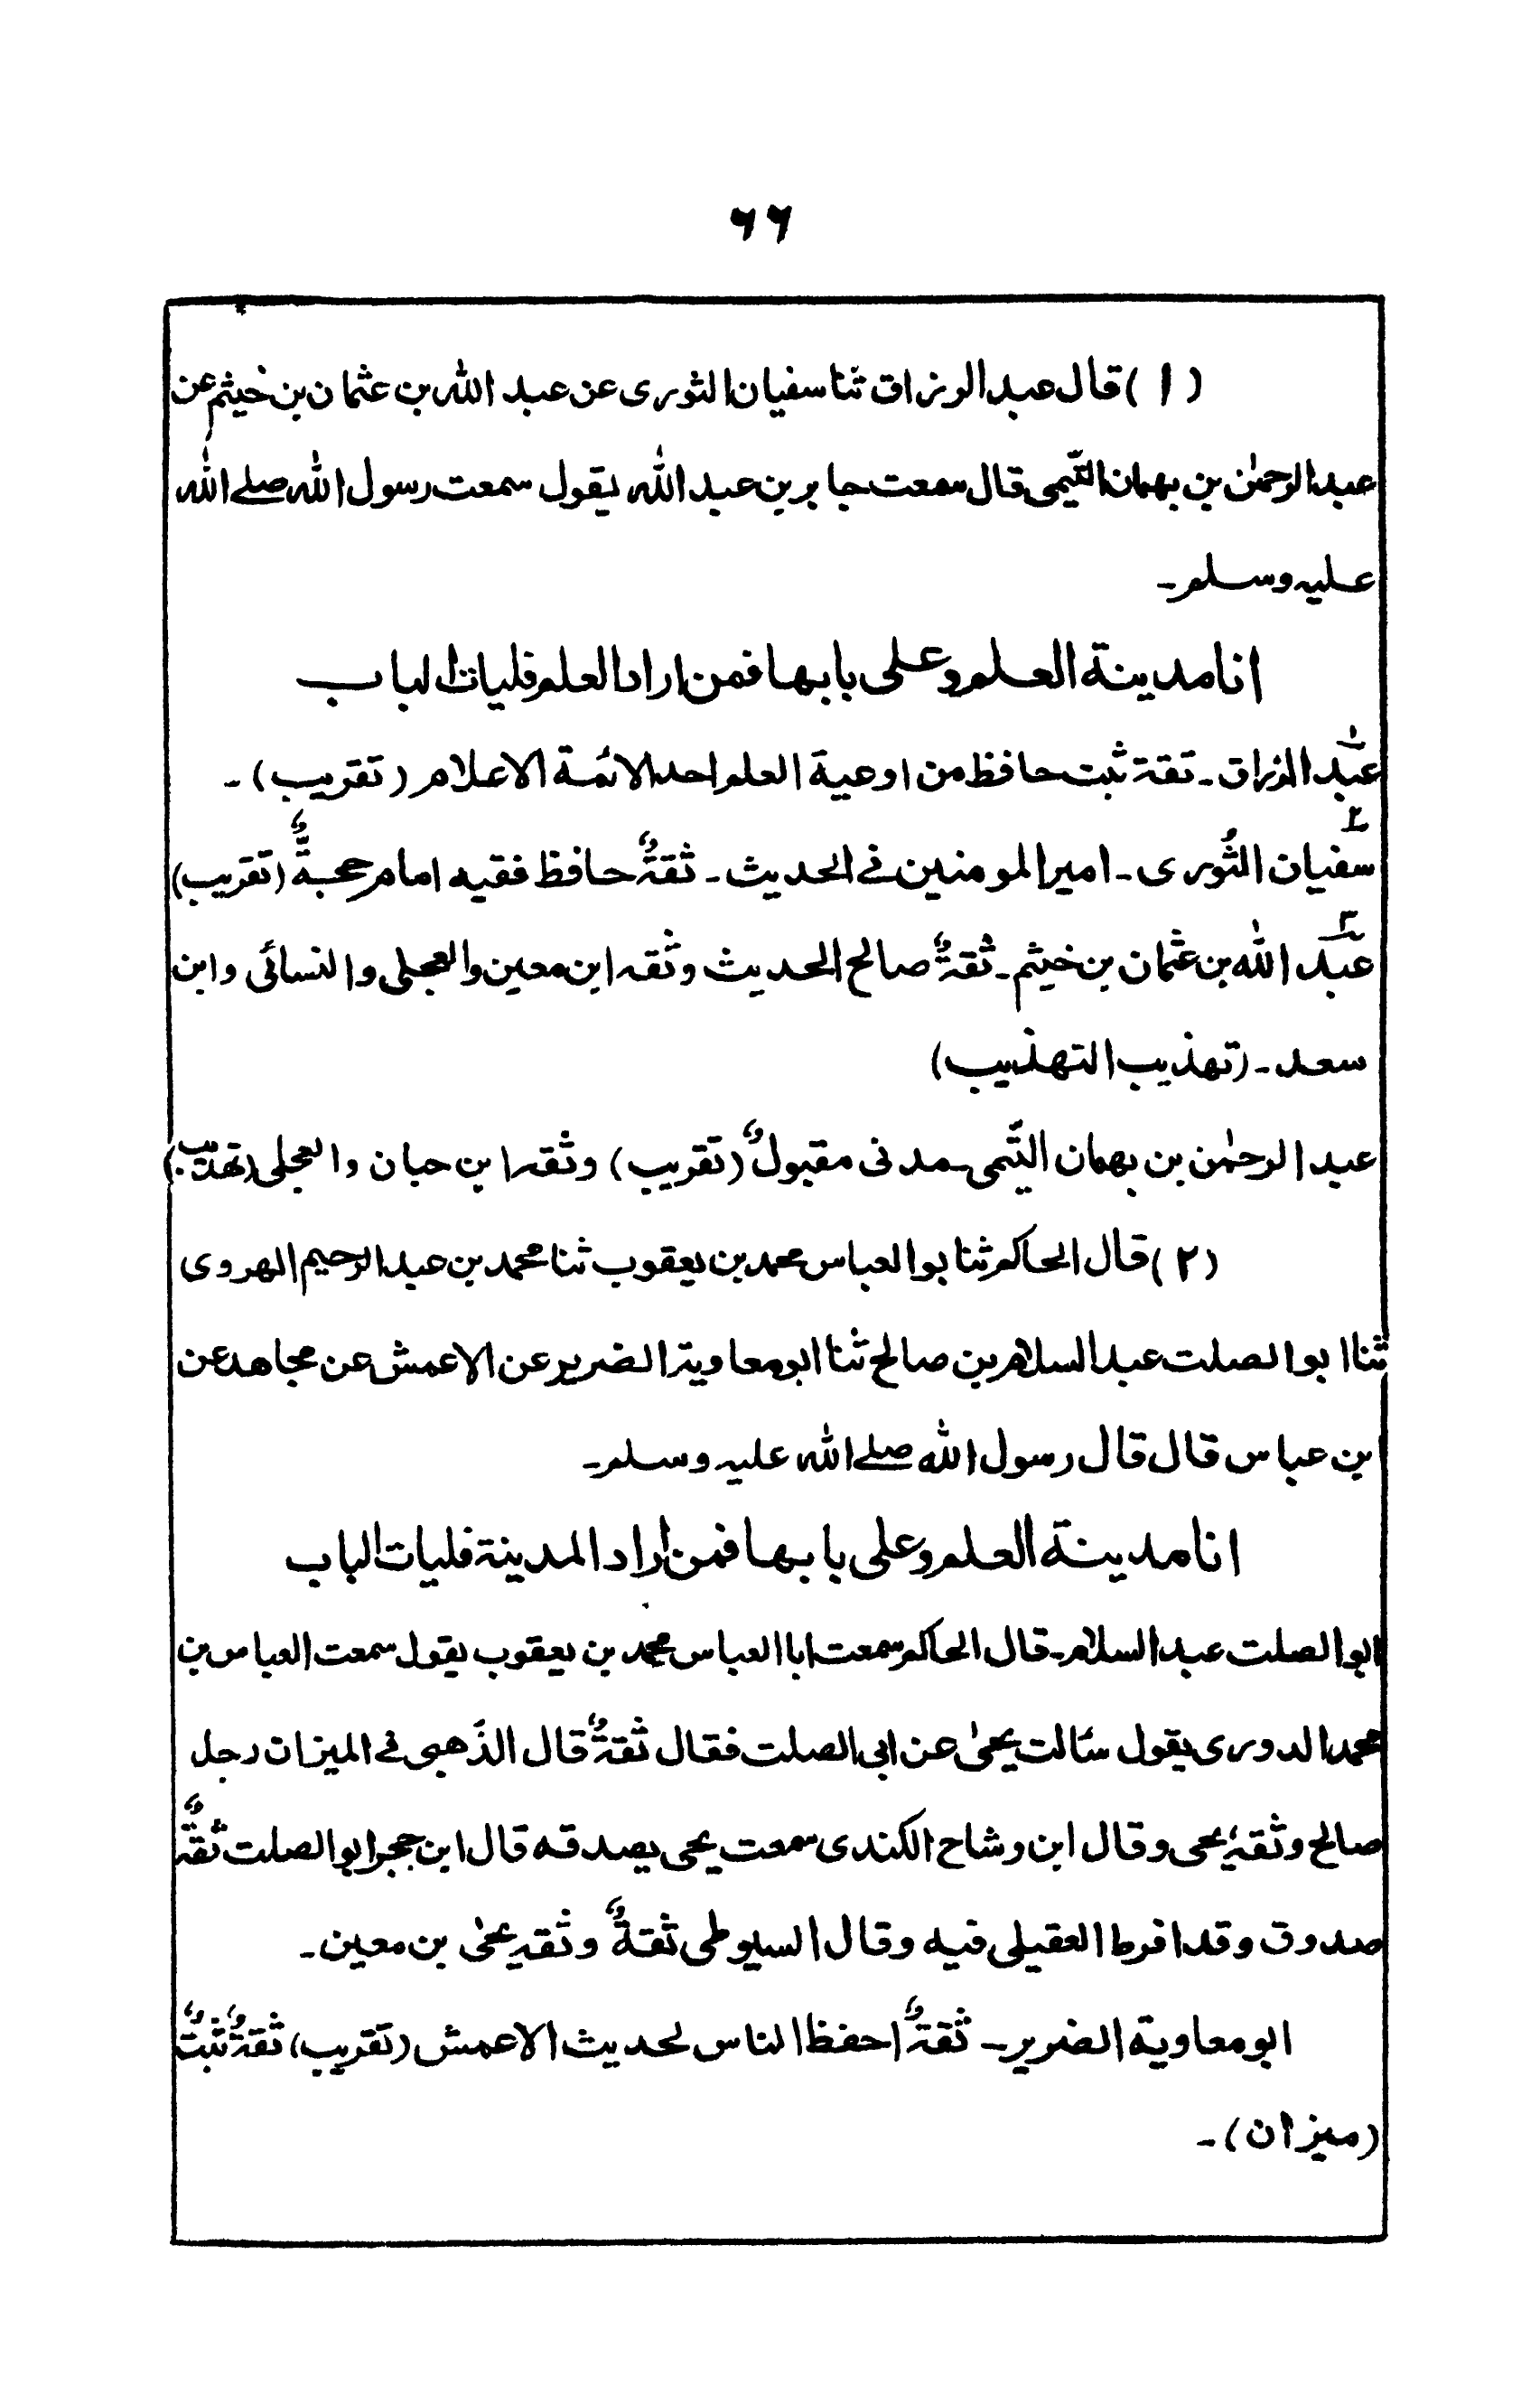 ۶۶
(۱) قال عبد الرزاق ثنا سفيان الثوری عن عبد الله بن عثمان بن خيثم عن
عبد الرحمٰن بن بهمان التيمی قال سمعت جابر بن عبد الله يقول سمعت رسول الله صلے الله
عليه وسلم۔
انا مدينة العلم وعلی بابها فمن اراد العلم فليات الباب
عبد الرزاق۔ ثقة ثبت حافظ من اوعية العلم احد الائمة الاعلام (تقريب)۔
سفيان الثوری۔ امير المومنين فے الحديث۔ ثقةٌ حافظ فقيه امام حجةٌ (تقريب)
عبد الله بن عثمان بن خيثم۔ ثقةٌ صالح الحديث وثقه ابن معين والعجلی والنسائی وابن
سعد۔ (تهذيب التهذيب)
عبد الرحمٰن بن بهمان التيمی۔ مدنی مقبولٌ (تقريب) وثقه ابن حبان والعجلی (تهذيب)
(۲) قال الحاكم ثنا ابو العباس محمد بن يعقوب ثنا محمد بن عبد الرحيم الهروی
ثنا ابو الصلت عبد السلام بن صالح ثنا ابو معاوية الضرير عن الاعمش عن مجاهد عن
ابن عباس قال قال رسول الله صلے الله عليه وسلم۔
انا مدينة العلم وعلی بابها فمن اراد المدينة فليات الباب
ابو الصلت عبد السلام۔ قال الحاكم سمعت ابا العباس محمد بن يعقوب يقول سمعت العباس بن
محمد الدوری يقول سئالت يحیٰ عن ابی الصلت فقال ثقةٌ قال الذهبی فے الميزان رجل
صالح وثقه يحی وقال ابن وشاح الكندی سمعت يحی يصدقه قال ابن حجر ابو الصلت ثقةٌ
صدوق وقد افرط العقيلی فيه وقال السيوطی ثقةٌ وثقه يحیٰ بن معين۔
ابو معاوية الضرير۔ ثقةٌ احفظ الناس لحديث الاعمش (تقريب) ثقةٌ ثبتٌ
(ميزان)۔